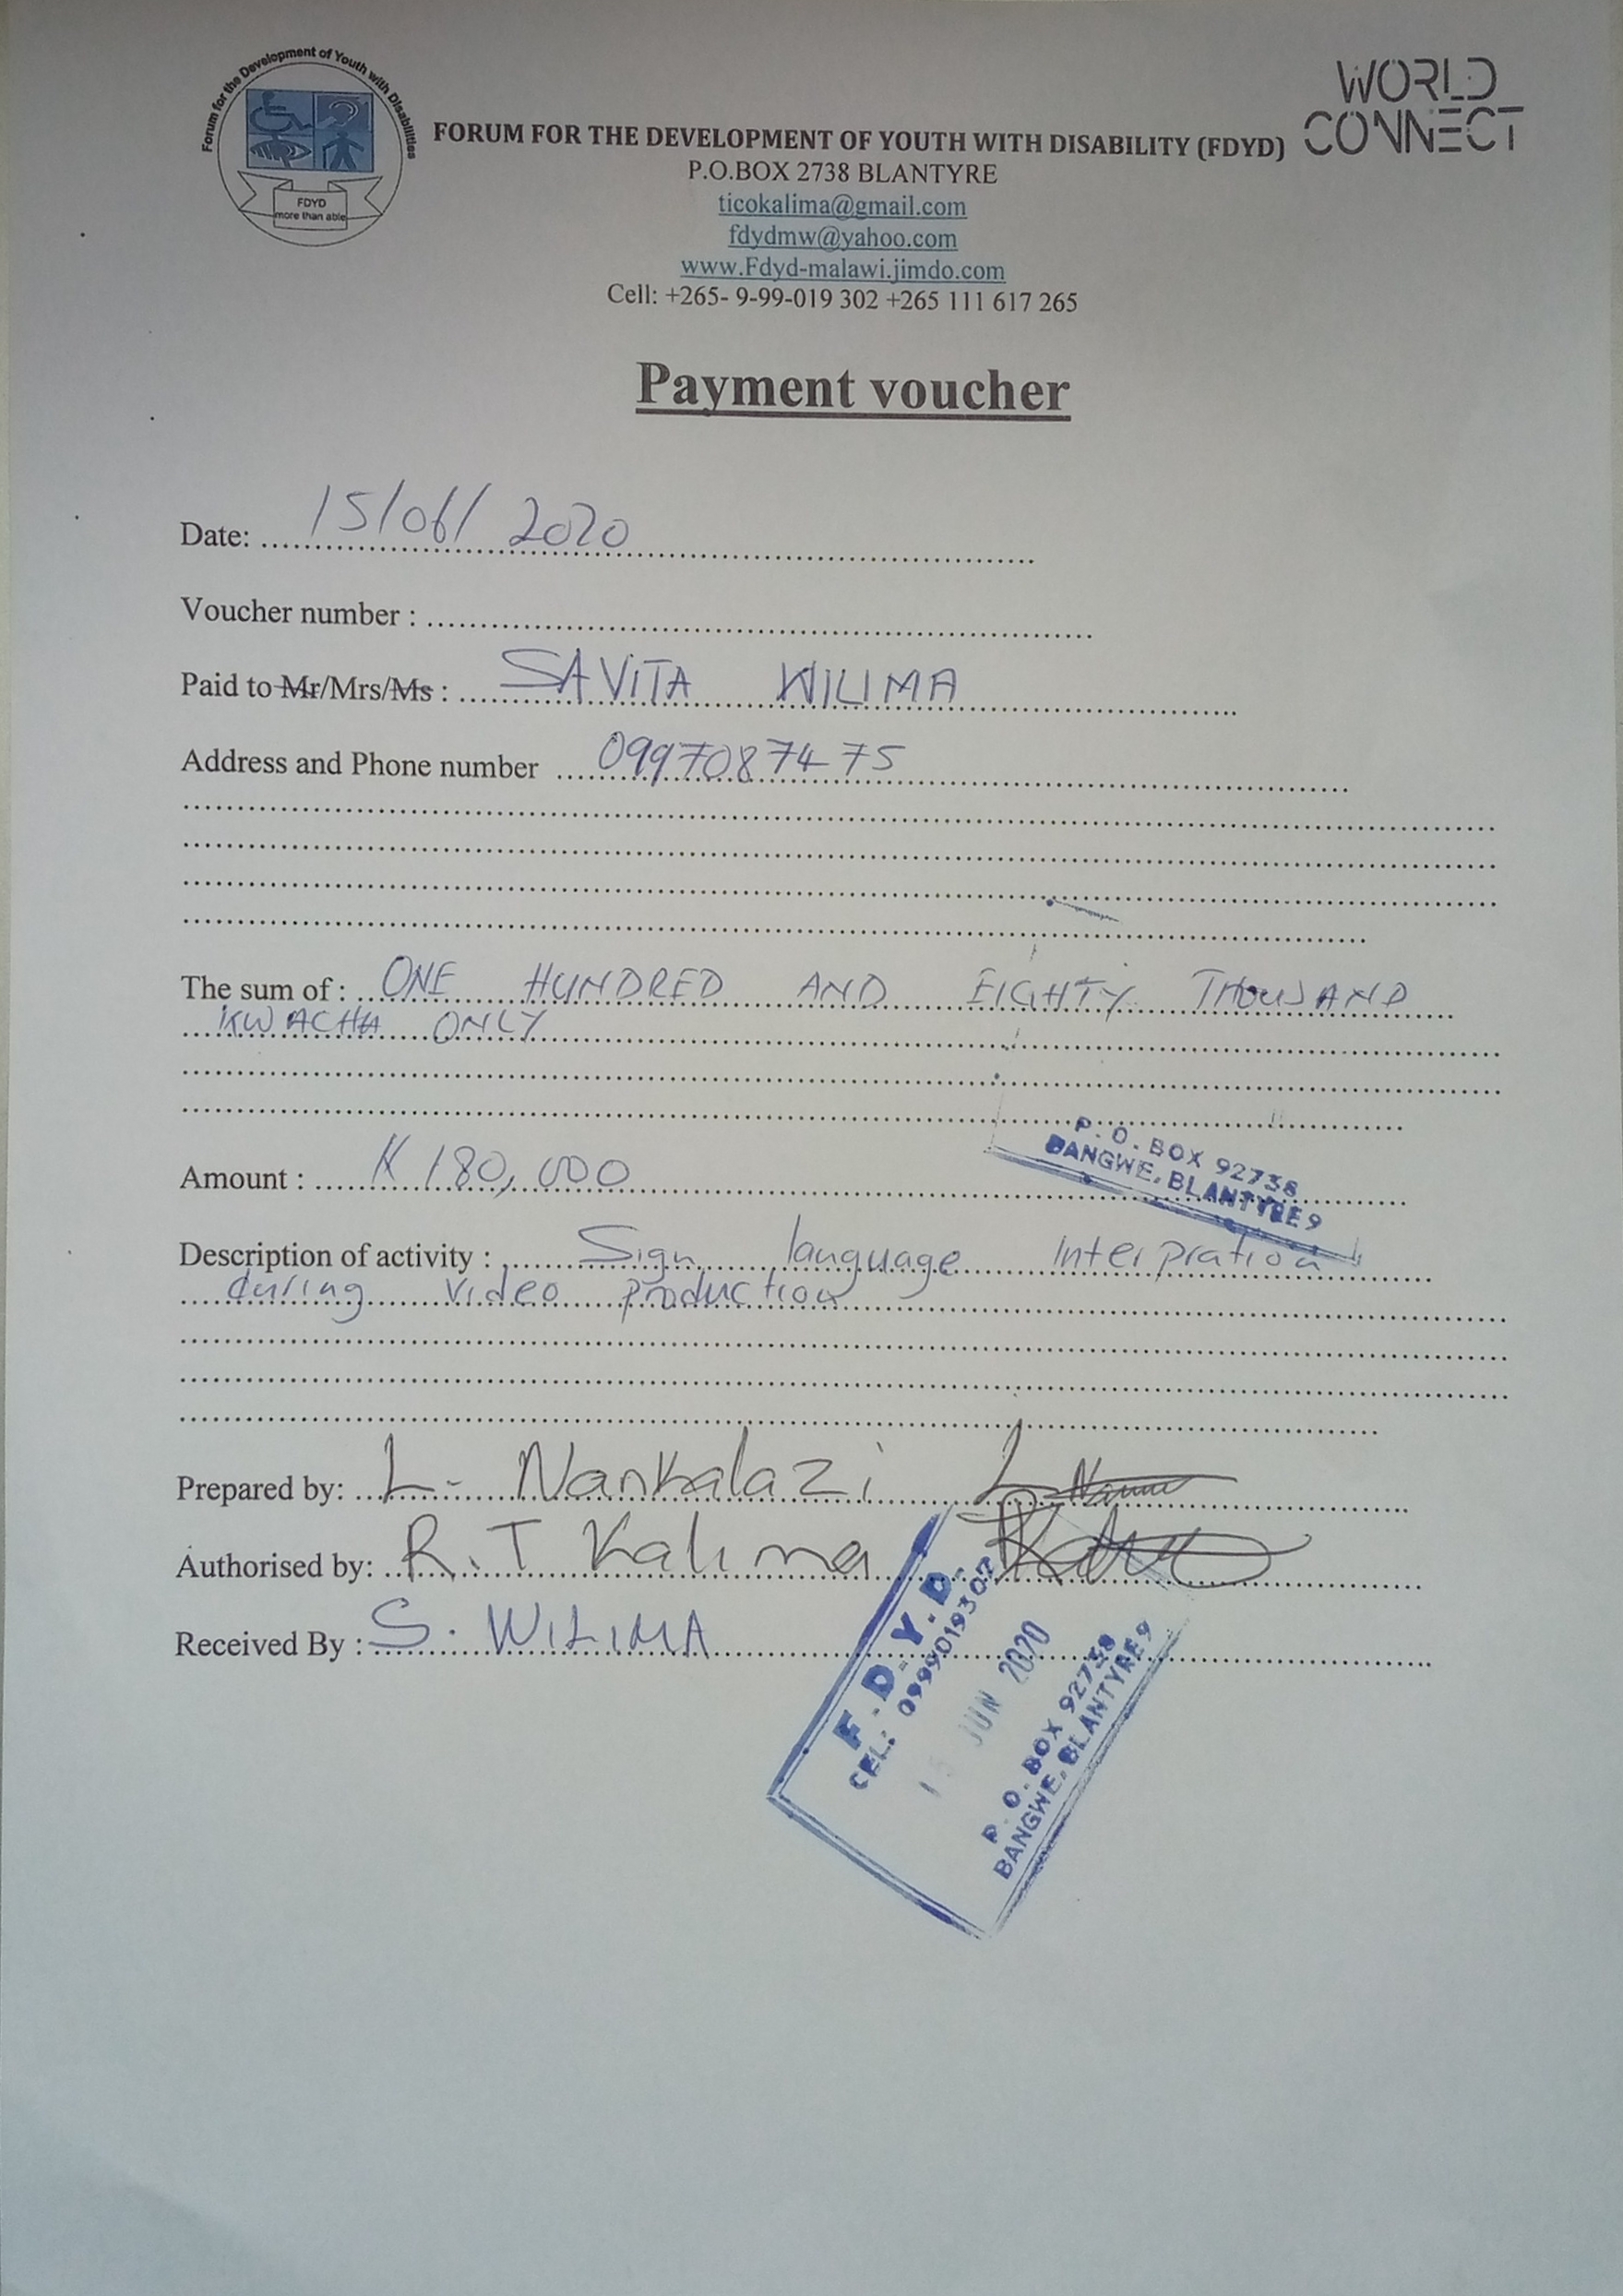 Forum for the Development of Youth with Disabilities
FDYD
more than able
WORLD
CONNECT
FORUM FOR THE DEVELOPMENT OF YOUTH WITH DISABILITY (FDYD)
P.O.BOX 2738 BLANTYRE
ticokalima@gmail.com
fdydmw@yahoo.com
www.Fdyd-malawi.jimdo.com
Cell: +265- 9-99-019 302 +265 111 617 265
Payment voucher
Date: 15/06/ 2020
Voucher number :
Paid to Mr/Mrs/Ms : SAVITA WILIMA
Address and Phone number 0997087475
The sum of : ONE HUNDRED AND EIGHTY THOUSAND
KWACHA ONLY
P. O. BOX 92738
BANGWE, BLANTYRE 9
Amount : K 180,000
Description of activity : Sign language Interpration
during video production
Prepared by: L. Nankalazi
Authorised by: R.T Kalima
Received By : S. WILIMA
F.D.Y.D.
CEL: 0999019302
JUN 2020
P. O. BOX 92738
BANGWE, BLANTYRE 9